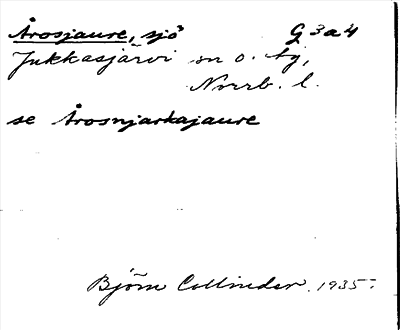 Årosjaure, sjö G 3 a 4
Jukkasjärvi sn o. tg,
Norrb. l.
se Årosnjarkajaure
Björn Collinder. 1935.